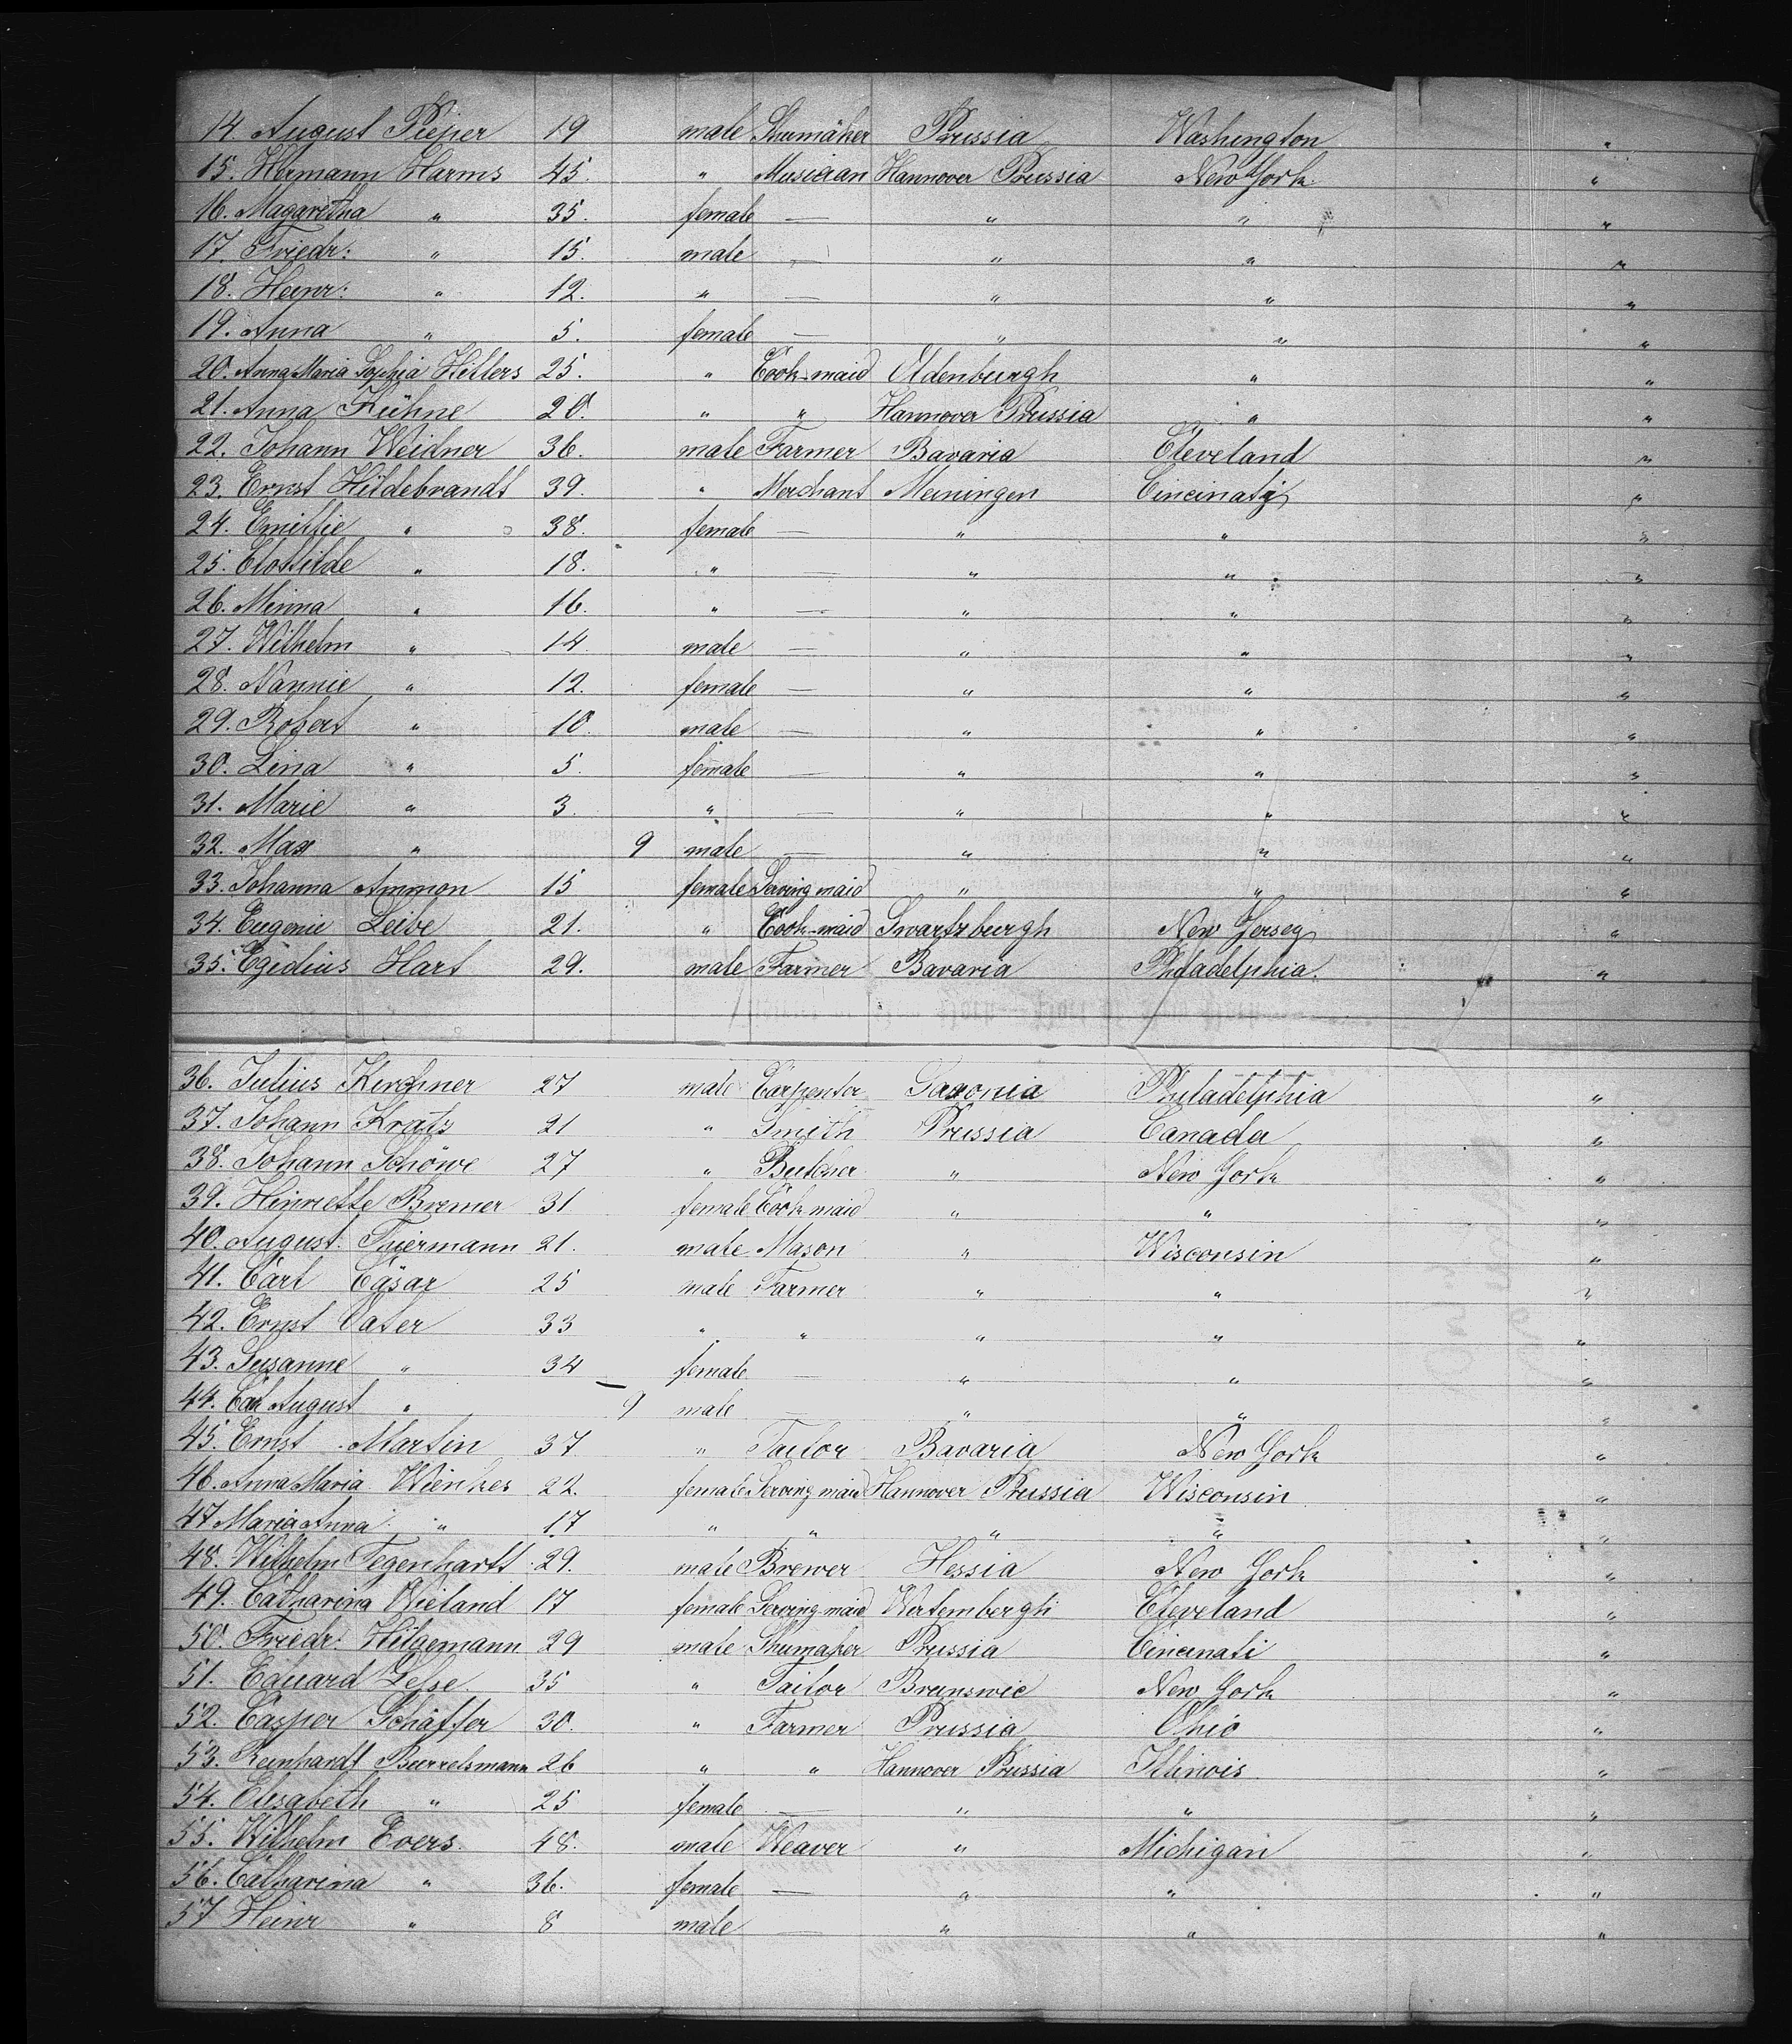 14. August Pieper 19 male Shumäker Prussia Washington "
15. Hermann Harms 45. " Musician Hannover Prussia New York "
16. Magaretha " 35. female — " " "
17. Friedr: " 15. male — " " "
18. Heinr: " 12. " — " " "
19. Anna " 5. female — " " "
20. Anna Maria Sophia Hillers 25. " Cook-maid Oldenburgh " "
21. Anna Kühne 20. " " Hannover Prussia " "
22. Johann Weidner 36. male Farmer Bavaria Cleveland "
23. Ernst Hildebrandt 39. " Merchant Meiningen Cincinati "
24. Emilie " 38. female — " " "
25. Clotilde " 18. " — " " "
26. Minna " 16. " — " " "
27. Wilhelm " 14. male — " " "
28. Nannie " 12. female — " " "
29. Robert " 10. male — " " "
30. Lina " 5. female — " " "
31. Marie " 3. " — " " "
32. Max " 9 male — " " "
33. Johanna Ammon 15 female Serving maid " " "
34. Eugenie Leibe 21. " Cook-maid Swartzburgh New Jersey "
35. Egidius Hart 29. male Farmer Bavaria Philadelphia. "
36. Julius Kirchner 27 male Carpenter Saxonia Philadelphia "
37. Johann Kratz 21 " Smith Prussia Canada "
38. Johann Schöwe 27 " Butcher " New York "
39. Hinriette Bremer 31 female Cook maid " " "
40. August. Tuiermann 21. male Mason " Wisconsin "
41. Carl Cäsar 25 male Farmer " " "
42. Ernst Vater 33 " " " " "
43. Susanne " 34 female — " " "
44. Carl August " 9 male — " " "
45. Ernst Martin 37 " Tailor Bavaria New York "
46. Anna Maria Wienkes 22. female Serving maid Hannover Prussia Wisconsin "
47 Maria Anna " 17 " " " " "
48. Wilhelm Tegenhartt 29. male Brewer Hessia New York "
49. Catharina Wieland 17 female Serving-maid Wurtembergh Cleveland "
50. Friedr: Hilgemann 29 male Shumaker Prussia Cincinati "
51. Eduard Lesse. 35 " Tailor Brunswic New York "
52. Casper Schäffer 30. " Farmer Prussia Ohio "
53. Reinhardt Burrelsmann 26 " " Hannover Prussia Illinois "
54. Elisabeth " 25 female — " " "
55. Wilhelm Evers. 48. male Weaver " Michigan "
56. Catharina " 36. female — " " "
57 Heinr " 8 male — " " "